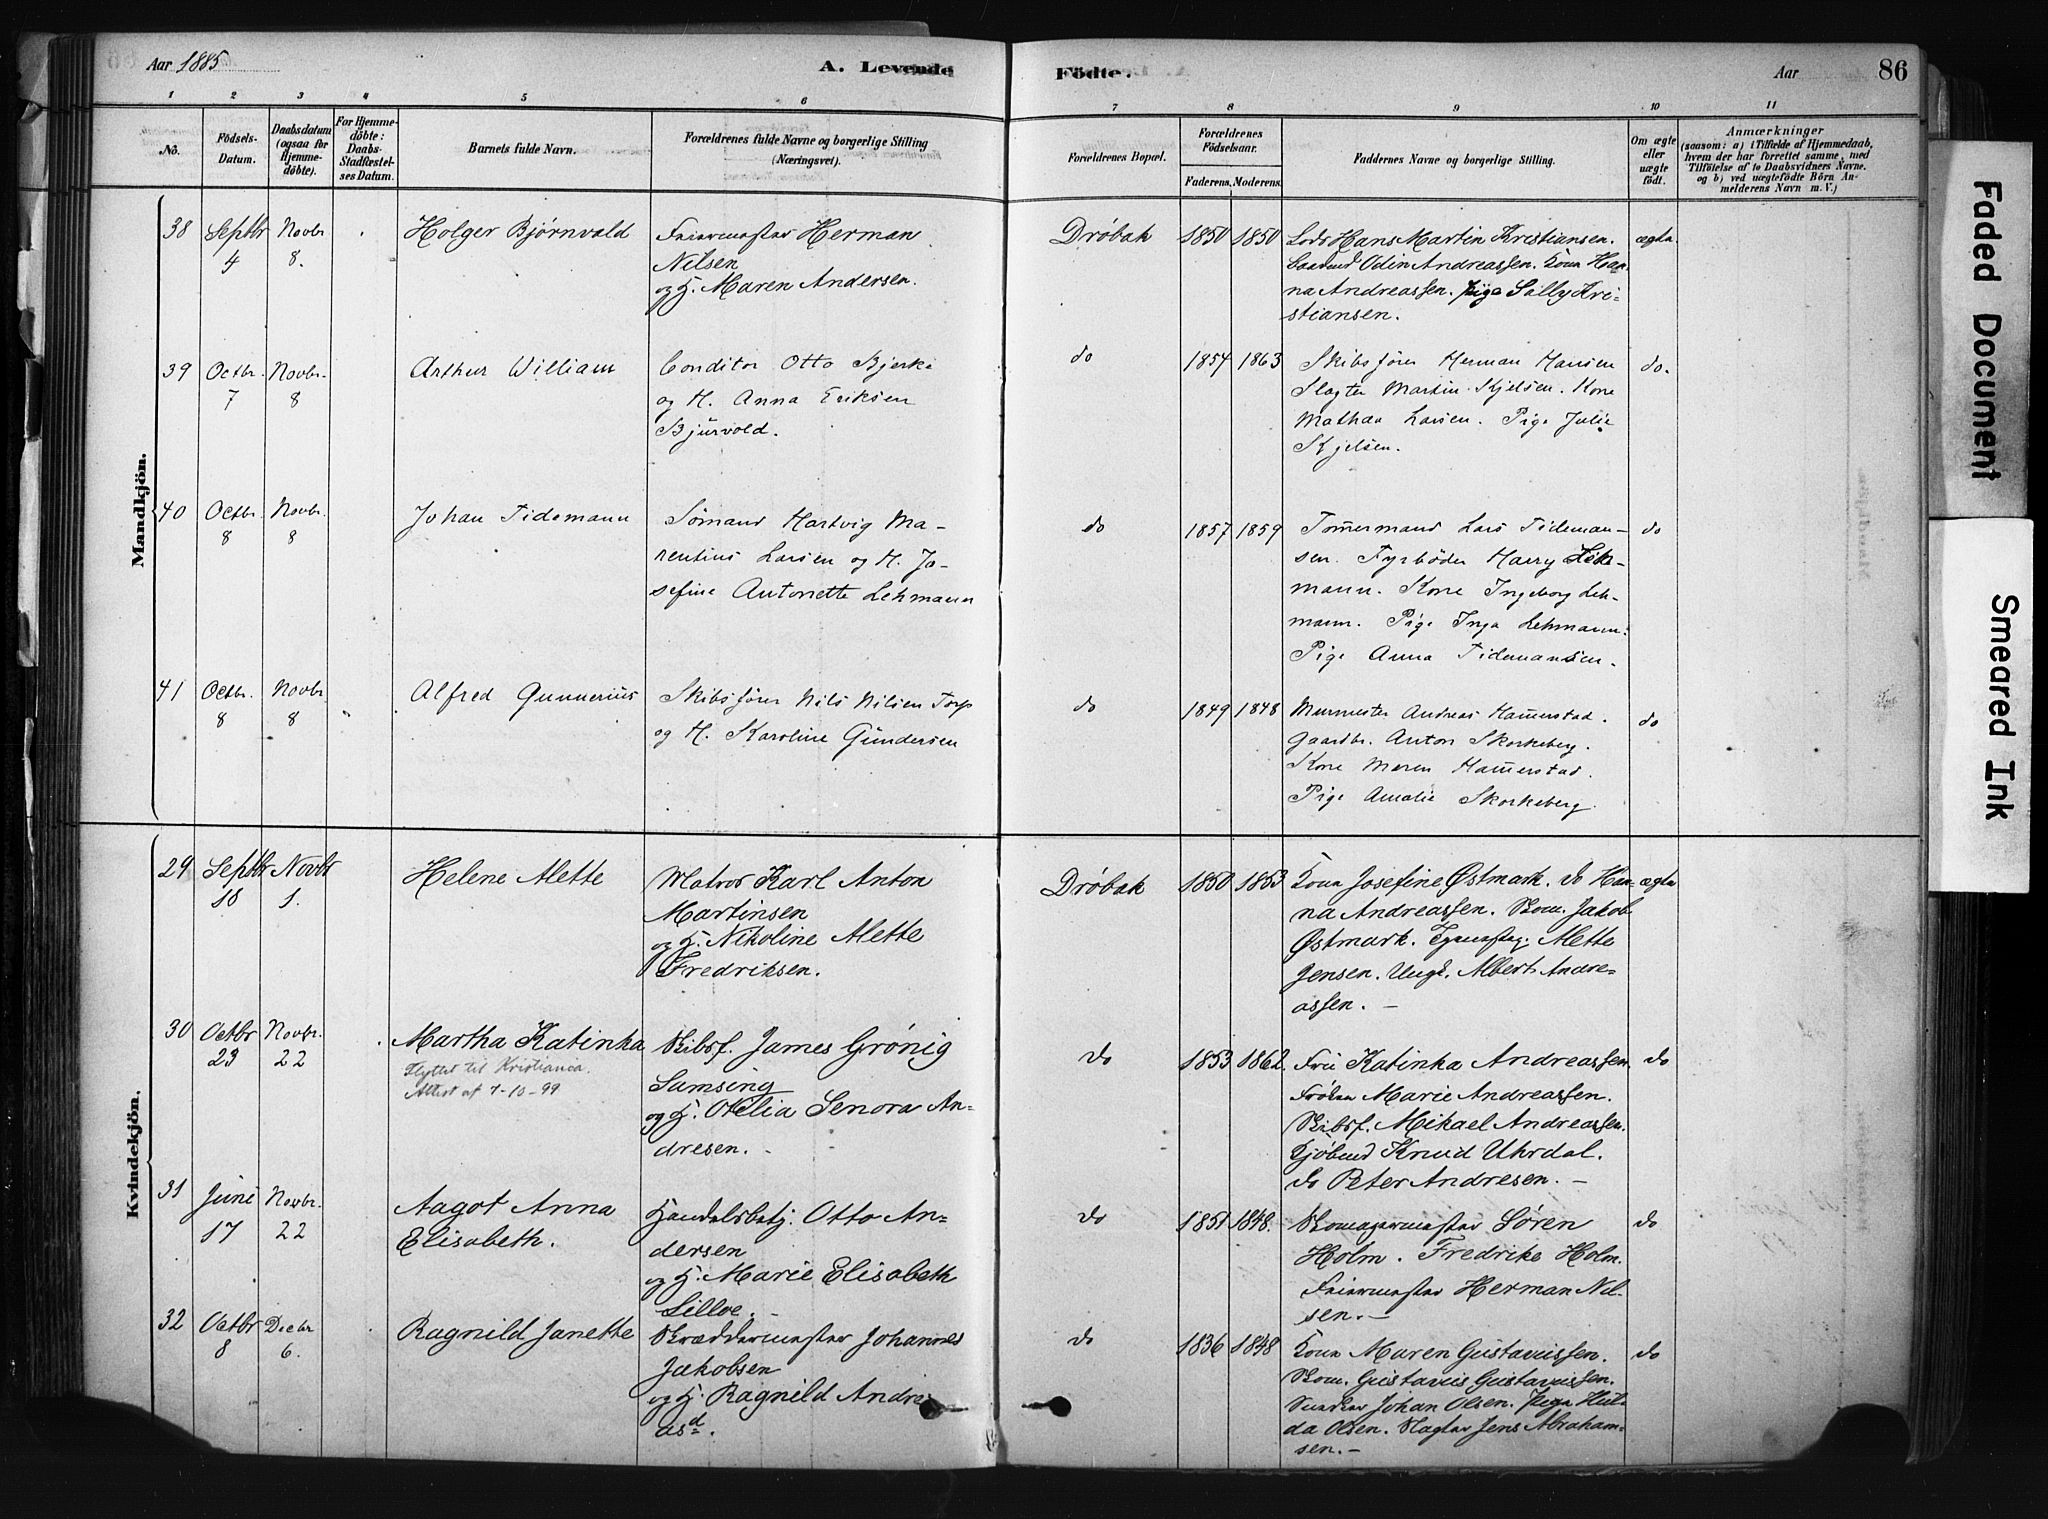 Aar 1885
A. Levende
Födte.
Aar
86
1 2 3 4 5 6 7 8 9 10 11
No.
Födsels-
Datum.
Daabsdatum
(ogsaa for
Hjemme-
döbte).
For Hjemme-
döbte:
Daabs-
Stadfæstel-
ses Datum.
Barnets fulde Navn.
Forældrenes fulde Navne og borgerlige Stilling
(Næringsvei).
Forældrenes Bopæl.
Forældrenes
Födselsaar.
Faderens. Moderens.
Faddernes Navne og borgerlige Stilling.
Om ægte
eller
uægte
födt.
Anmærkninger
(saasom: a) i Tilfælde af Hjemmedaab,
hvem der har forrettet samme, med
Tilföielse af to Daabsvidners Navne.
og b) ved uægtefödte Börn An-
melderens Navn m. V.)
Mandkjön.
38
Septbr
4
Novbr
8.
Holger Bjørnvald
Feiermester Herman
Nilsen
og H. Maren Andersen.
Drøbak
1850 1850
Lods Hans Martin Kristiansen.
Odin Andreassen. Kone Han-
na Andreassen. Pige Sally Kri-
stiansen.
ægte
39
Octbr.
7
Novbr.
8
Arthur William
Conditor Otto Bjerke
og H. Anna Eriksen
Bjurvold.
do
1854 1863
Skibsfører Herman Hansen
Slagter Martin Kjelsen. Kone
Mathea Larsen. Pige Julie
Kjelsen.
do.
40
Octbr.
8
Novbr.
8
Johan Tidemann
Sømand Hartvig Ma-
rentius Larsen og H. Jo-
sefine Antonette Lehmann
do
1857 1859
Tømermand Lars Tideman-
sen. Fyrbøder Harry Leh-
mann. Kone Ingeborg Leh-
mann. Pige Inga Lehmann.
Pige Anna Tidemansen.
do
41
Octbr.
8
Novbr
8
Alfred Gunnerius
Skibsfører Nils Nilsen Torp
og H. Karoline Gundersen
do
1849 1848
Murmester Andreas Hamerstad.
Gaardbr. Anton Skorkeberg.
Kone Maren Hamerstad.
Pige Amalie Skorkeberg.
do
Kvindekjön.
29
Septbr
18
Novbr
1.
Helene Alette
Matros Karl Anton
Martinsen
og H. Nikoline Alette
Fredriksen.
Drøbak
1850 1853
Kone Josefine Østmark. do Han-
na Andreassen. Skom. Jakob
Østmark. Tjenestep. Alette
Jensen. Ungk. Albert Andre-
assen. –
ægte
30
Octbr
23
Novbr.
22
Martha Katinka
Flyttet til Kristiania.
Attest af 7-10-99
Skibsf. James Grønig
Samsing
og H. Otelia Senora An-
dresen. -
do
1853 1862.
Frü Katinka Andreassen
Frøken Marie Andreassen.
Skibsf. Mikael Andreassen.
Kjøbmd Knud Uhrdal.
do Peter Andresen. –
do
31
Juni
17
Novbr.
22
Aagot Anna
Elisabeth.
Handelsbetj. Otto An-
dersen
og H. Marie Elisabeth
Lilloe. –
do
1851 1848.
Skomagermester Søren
Holm. Fredrike Holm.
Feiermester Herman Nil-
sen. –
do
32
Octbr
8
Decbr
6.
Ragnild Janette
Skræddermester Johannes
Jakobsen
og H. Ragnild Andre
asd.
do
1836 1848
Kone Maren Gustavussen.
Skom. Gustavus Gustavussen.
Snedker Johan Olsen. Pige Hul-
da Olsen. Slagter Jens Abraham-
sen. –
do
Faded Document
Smeared Ink